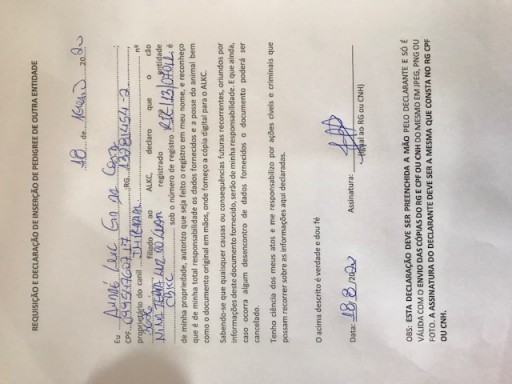 REQUISIÇÃO E DECLARAÇÃO DE INSERÇÃO DE PEDIGREE DE OUTRA ENTIDADE
18 de 2020
Eu André
CPF RG
proprietário do canil nº
filiado ao ALKC, declaro que o cão
registrado entidade
CBKC sob o número de registro é
de minha propriedade, autorizo que seja feito o registro em meu nome, e reconheço
que é de minha total responsabilidade os dados fornecidos e a posse do animal bem
como o documento original em mãos, onde forneço a cópia digital para o ALKC.
Sabendo-se que quaisquer causas ou consequências futuras recorrentes, oriundos por
informações deste documento fornecido, serão de minha responsabilidade. E que ainda,
caso ocorra algum desencontro de dados fornecidos o documento poderá ser
cancelado.
Tenho ciência dos meus atos e me responsabilizo por ações cíveis e criminais que
possam recorrer sobre as informações aqui declaradas.
O acima descrito é verdade e dou fé
Data: 18/8/2020 Assinatura:
(igual ao RG ou CNH)
OBS: ESTA DECLARAÇÃO DEVER SER PREENCHIDA A MÃO PELO DECLARANTE E SÓ É
VÁLIDA COM O ENVIO DAS CÓPIAS DO RG E CPF OU CNH DO MESMO EM JPEG, PNG OU
FOTO. A ASSINATURA DO DECLARANTE DEVE SER A MESMA QUE CONSTA NO RG CPF
OU CNH.